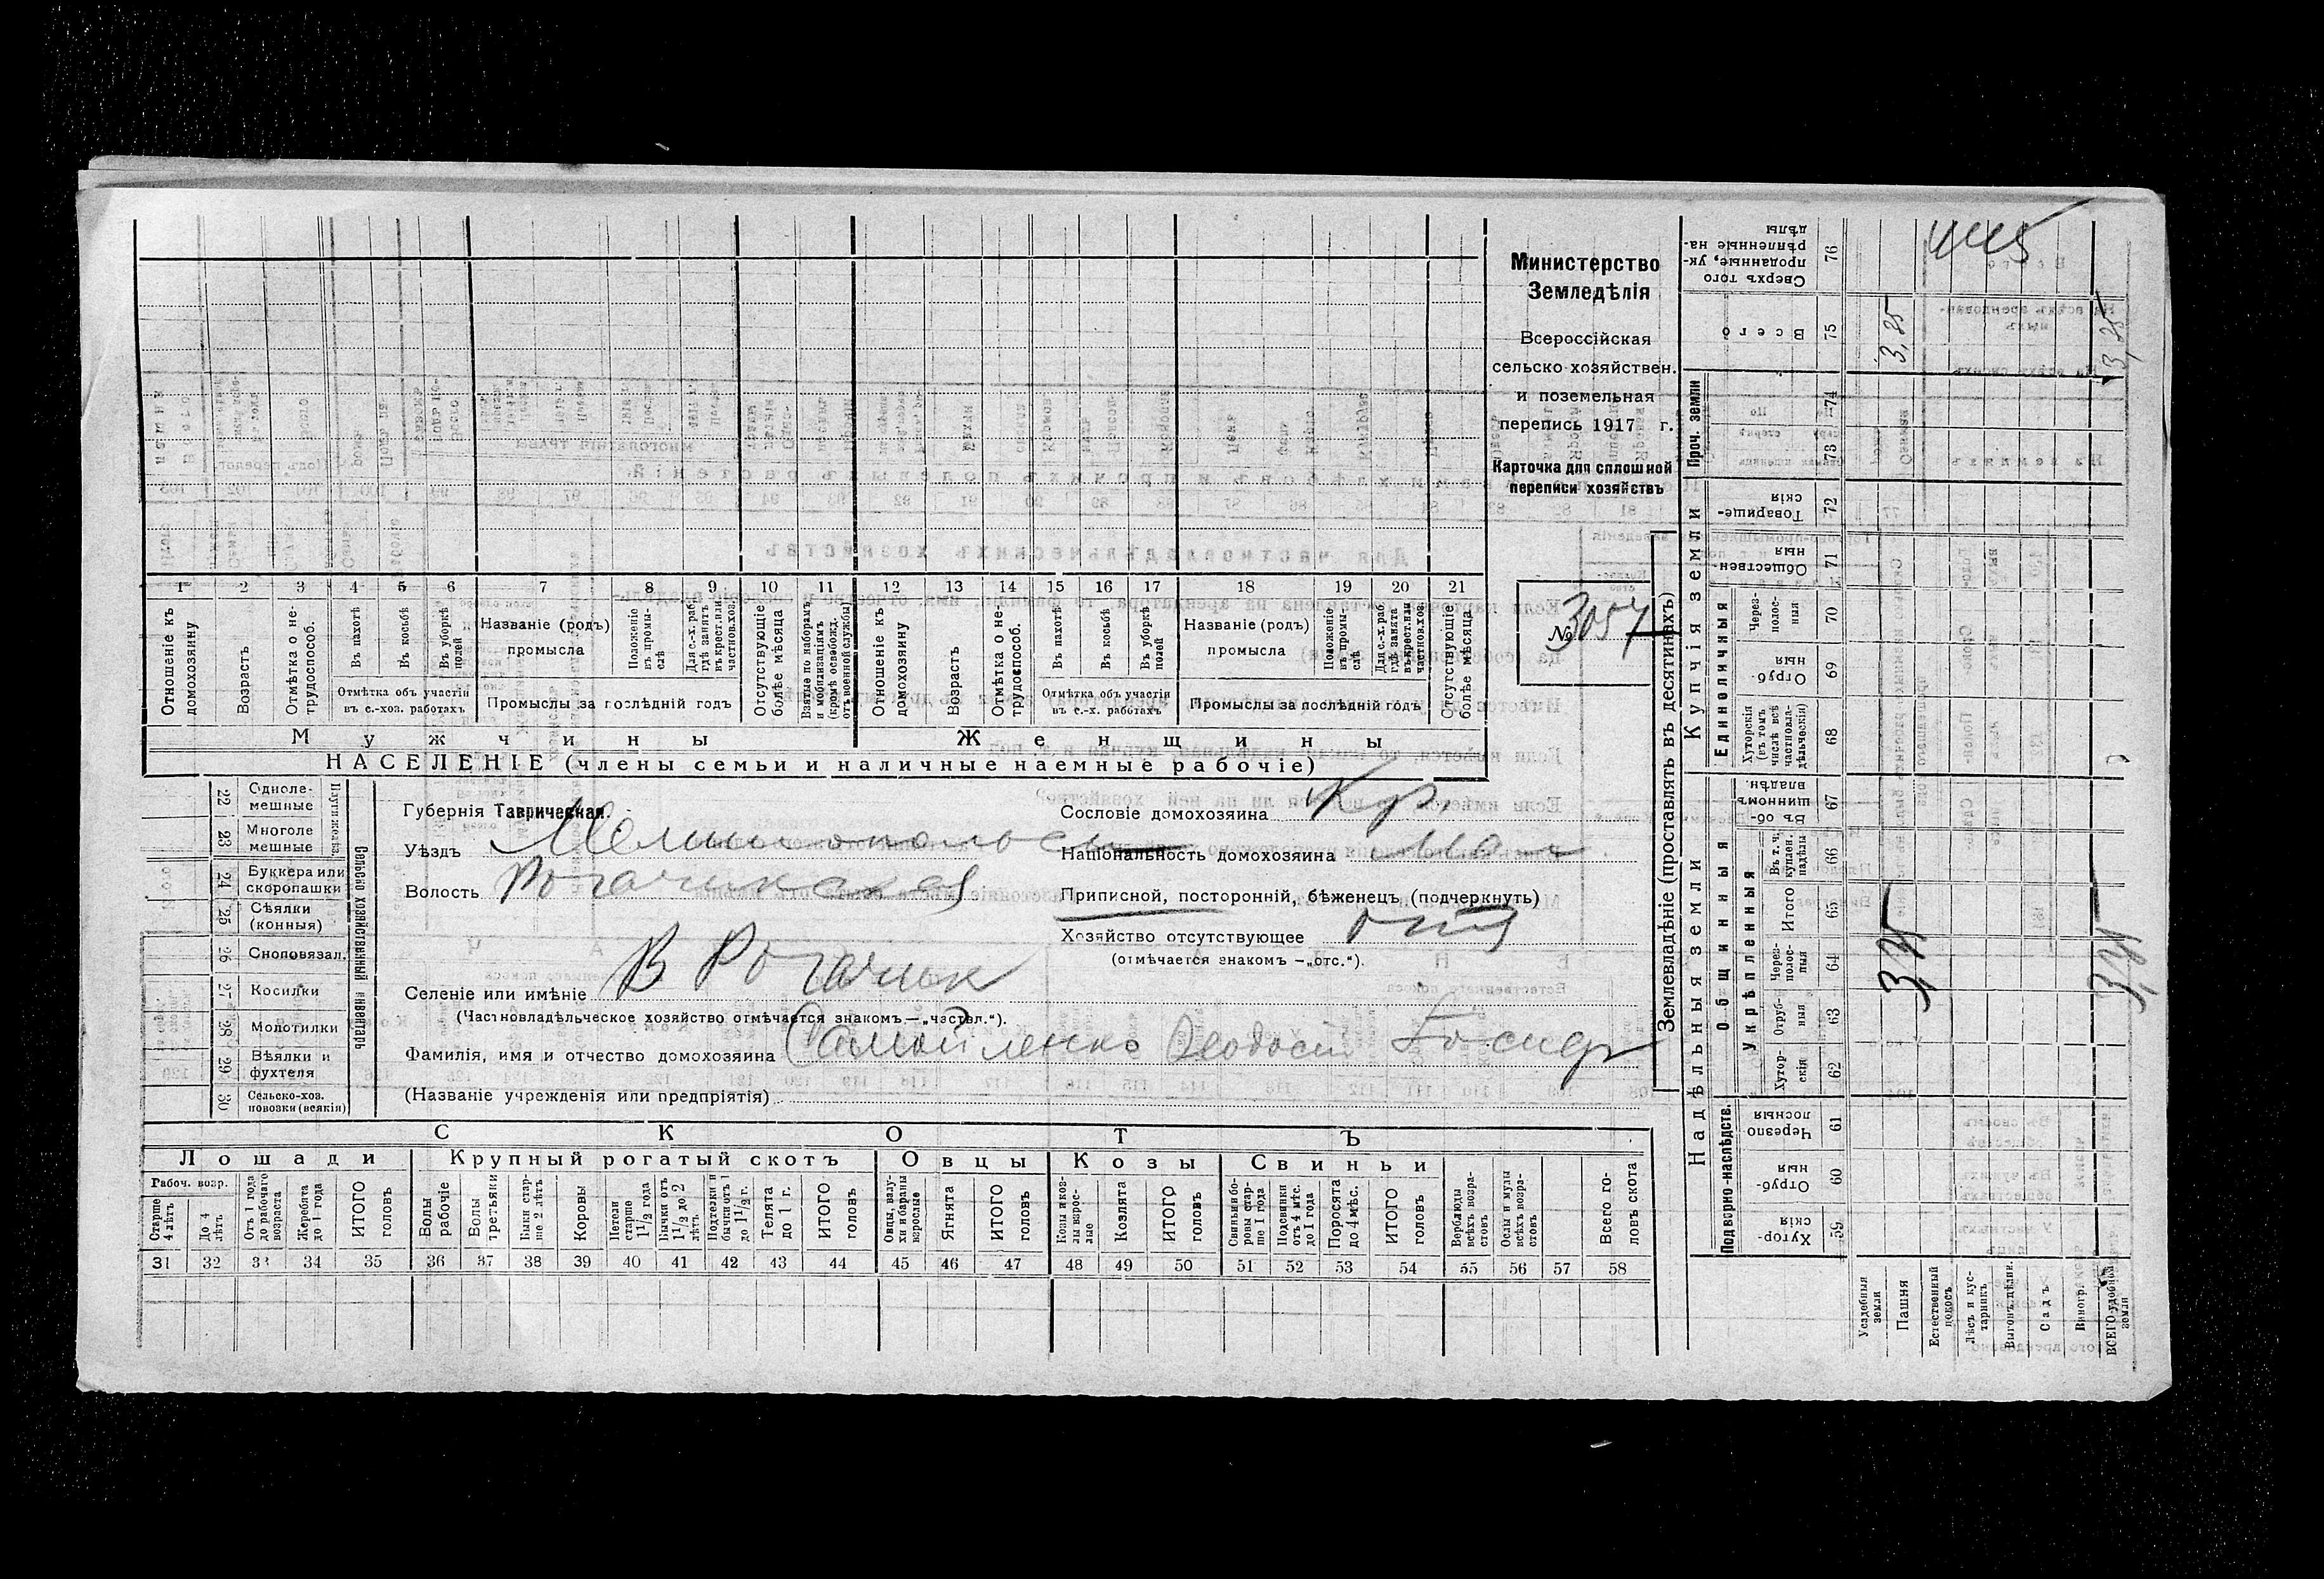 445
Министерство
Земледѣлія
Всероссійская
сельско-хозяйствен.
и поземельная
перепись 1917 г.
Карточка для сплошной
переписи хозяйствъ
№ 3057
1 2 3 4 5 6 7 8 9 10 11 12 13 14 15 16 17 18 19 20 21
Отношеніе къ домохозяину
Возрастъ
Отмѣтка о не-трудоспособ.
Въ пахотѣ
Въ косьбѣ
Въ уборкѣ полей
Отмѣтка объ участіи
въ с.-хоз. работахъ
Названіе (родъ)
промысла
Положеніе въ промы-слѣ
Для с.-х. раб. гдѣ занятъ въ крест. или частнов. хоз.
Промыслы за послѣдній годъ
Отсутствующіе болѣе мѣсяца
Взятые по наборамъ и мобилизаціямъ (кромѣ освобожд. отъ военной службы)
Отношеніе къ домохозяину
Возрастъ
Отмѣтка о не-трудоспособ.
Въ пахотѣ
Въ косьбѣ
Въ уборкѣ полей
Отмѣтка объ участіи
въ с.-х. работахъ
Названіе (родъ)
промысла
Положеніе въ промы-слѣ
Для с.-х. раб. гдѣ занята въ крест. или частнов. хоз.
Промыслы за послѣдній годъ
Отсутствующіе болѣе мѣсяца
Мужчины
Женщины
НАСЕЛЕНІЕ (члены семьи и наличные наемные рабочіе)
Сельско хозяйственный инвентарь
22 Одноле-мешные
23 Многоле мешные
24 Буккера или скоропашки
25 Сѣялки (конныя)
26 Сноповязал.
27 Косилки
28 Молотилки
29 Вѣялки и фухтеля
30 Сельско-хоз. повозки (всякія)
Губернія Таврическая.
Уѣздъ Мелитопольск
Волость Рогачикская
Селеніе или имѣніе В Рогачик
(Частновладѣльческое хозяйство отмѣчается знакомъ—„частвл.“).
Фамилія, имя и отчество домохозяина Самойленко Феодосій
(Названіе учрежденія или предпріятія)
Сословіе домохозяина Кр.
Національность домохозяина мал
Приписной, посторонній, бѣженецъ (подчеркнуть)
Хозяйство отсутствующее отс
(отмѣчается знакомъ—„отс.“).
СКОТЪ
Лошади
Крупный рогатый скотъ
Овцы
Козы
Свиньи
Рабоч. возр.
Старше 4 лѣтъ
До 4 лѣтъ
Отъ 1 года до рабочаго возраста
Жеребята до 1 года
ИТОГО головъ
Волы рабочіе
Волы третьяки
Быки стар-ше 2 лѣтъ
Коровы
Нетели старше 1½ года
Бычки отъ 1½ до 2 лѣтъ
Подтелки и бычки отъ 1 до 1½ г.
Телята до 1 г.
ИТОГО головъ
Овцы, валу-хи и бараны взрослые
Ягнята
ИТОГО головъ
Козы и коз-лы взрос-лые
Козлята
ИТОГО головъ
Свиньи и бо-ровы стар-ше 1 года
Подсвинки отъ 4 мѣс. до 1 года
Поросята до 4 мѣс.
ИТОГО головъ
Верблюды всѣхъ возра-стовъ
Ослы и мулы всѣхъ возра-стовъ
Всего го-ловъ скота
31 32 33 34 35 36 37 38 39 40 41 42 43 44 45 46 47 48 49 50 51 52 53 54 55 56 57 58
Землевладѣніе (проставлять въ десятинахъ)
Купчія земли
Надѣльныя земли
Проч. земли
Единоличныя
Общинныя
Укрѣпленныя
Подворно-наслѣдств.
76 Сверхъ того проданные, ук-рѣпленные на-дѣлы
75 Всего 3,25 3,25
74
73
72 Товарище-скія
71 Обществен-ныя
70 Через-полос-ныя
69 Отруб-ныя
68 Хуторскія (въ томъ числѣ всѣ частновла-дѣльческія)
67 Въ об-щинномъ владѣн.
66 Въ т. ч. куплен. надѣлы
65 Итого
64 Через-полос-ныя
63 Отруб-ныя
62 Хутор-скія
61 Черезпо лосныя
60 Отруб-ныя
59 Хутор-скія
Усадебныя земли
Пашня
Естественный покосъ
Лѣсъ и кус-тарникъ
Выгонъ дѣлин.
Садъ
Виногр.
ВСЕГО удобной земли